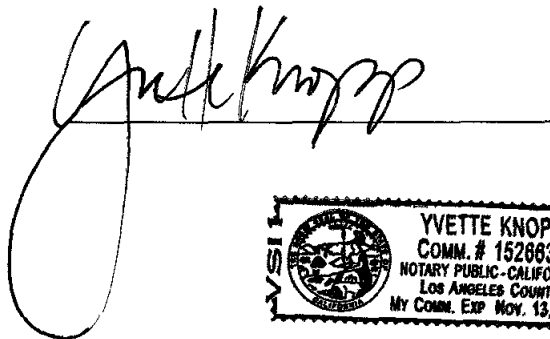 Yvette Knopp
YVETTE KNOP
COMM. # 152663
NOTARY PUBLIC-CALIFO
LOS ANGELES COUNT
MY COMM. EXP NOV. 13,
CALIFORNIA